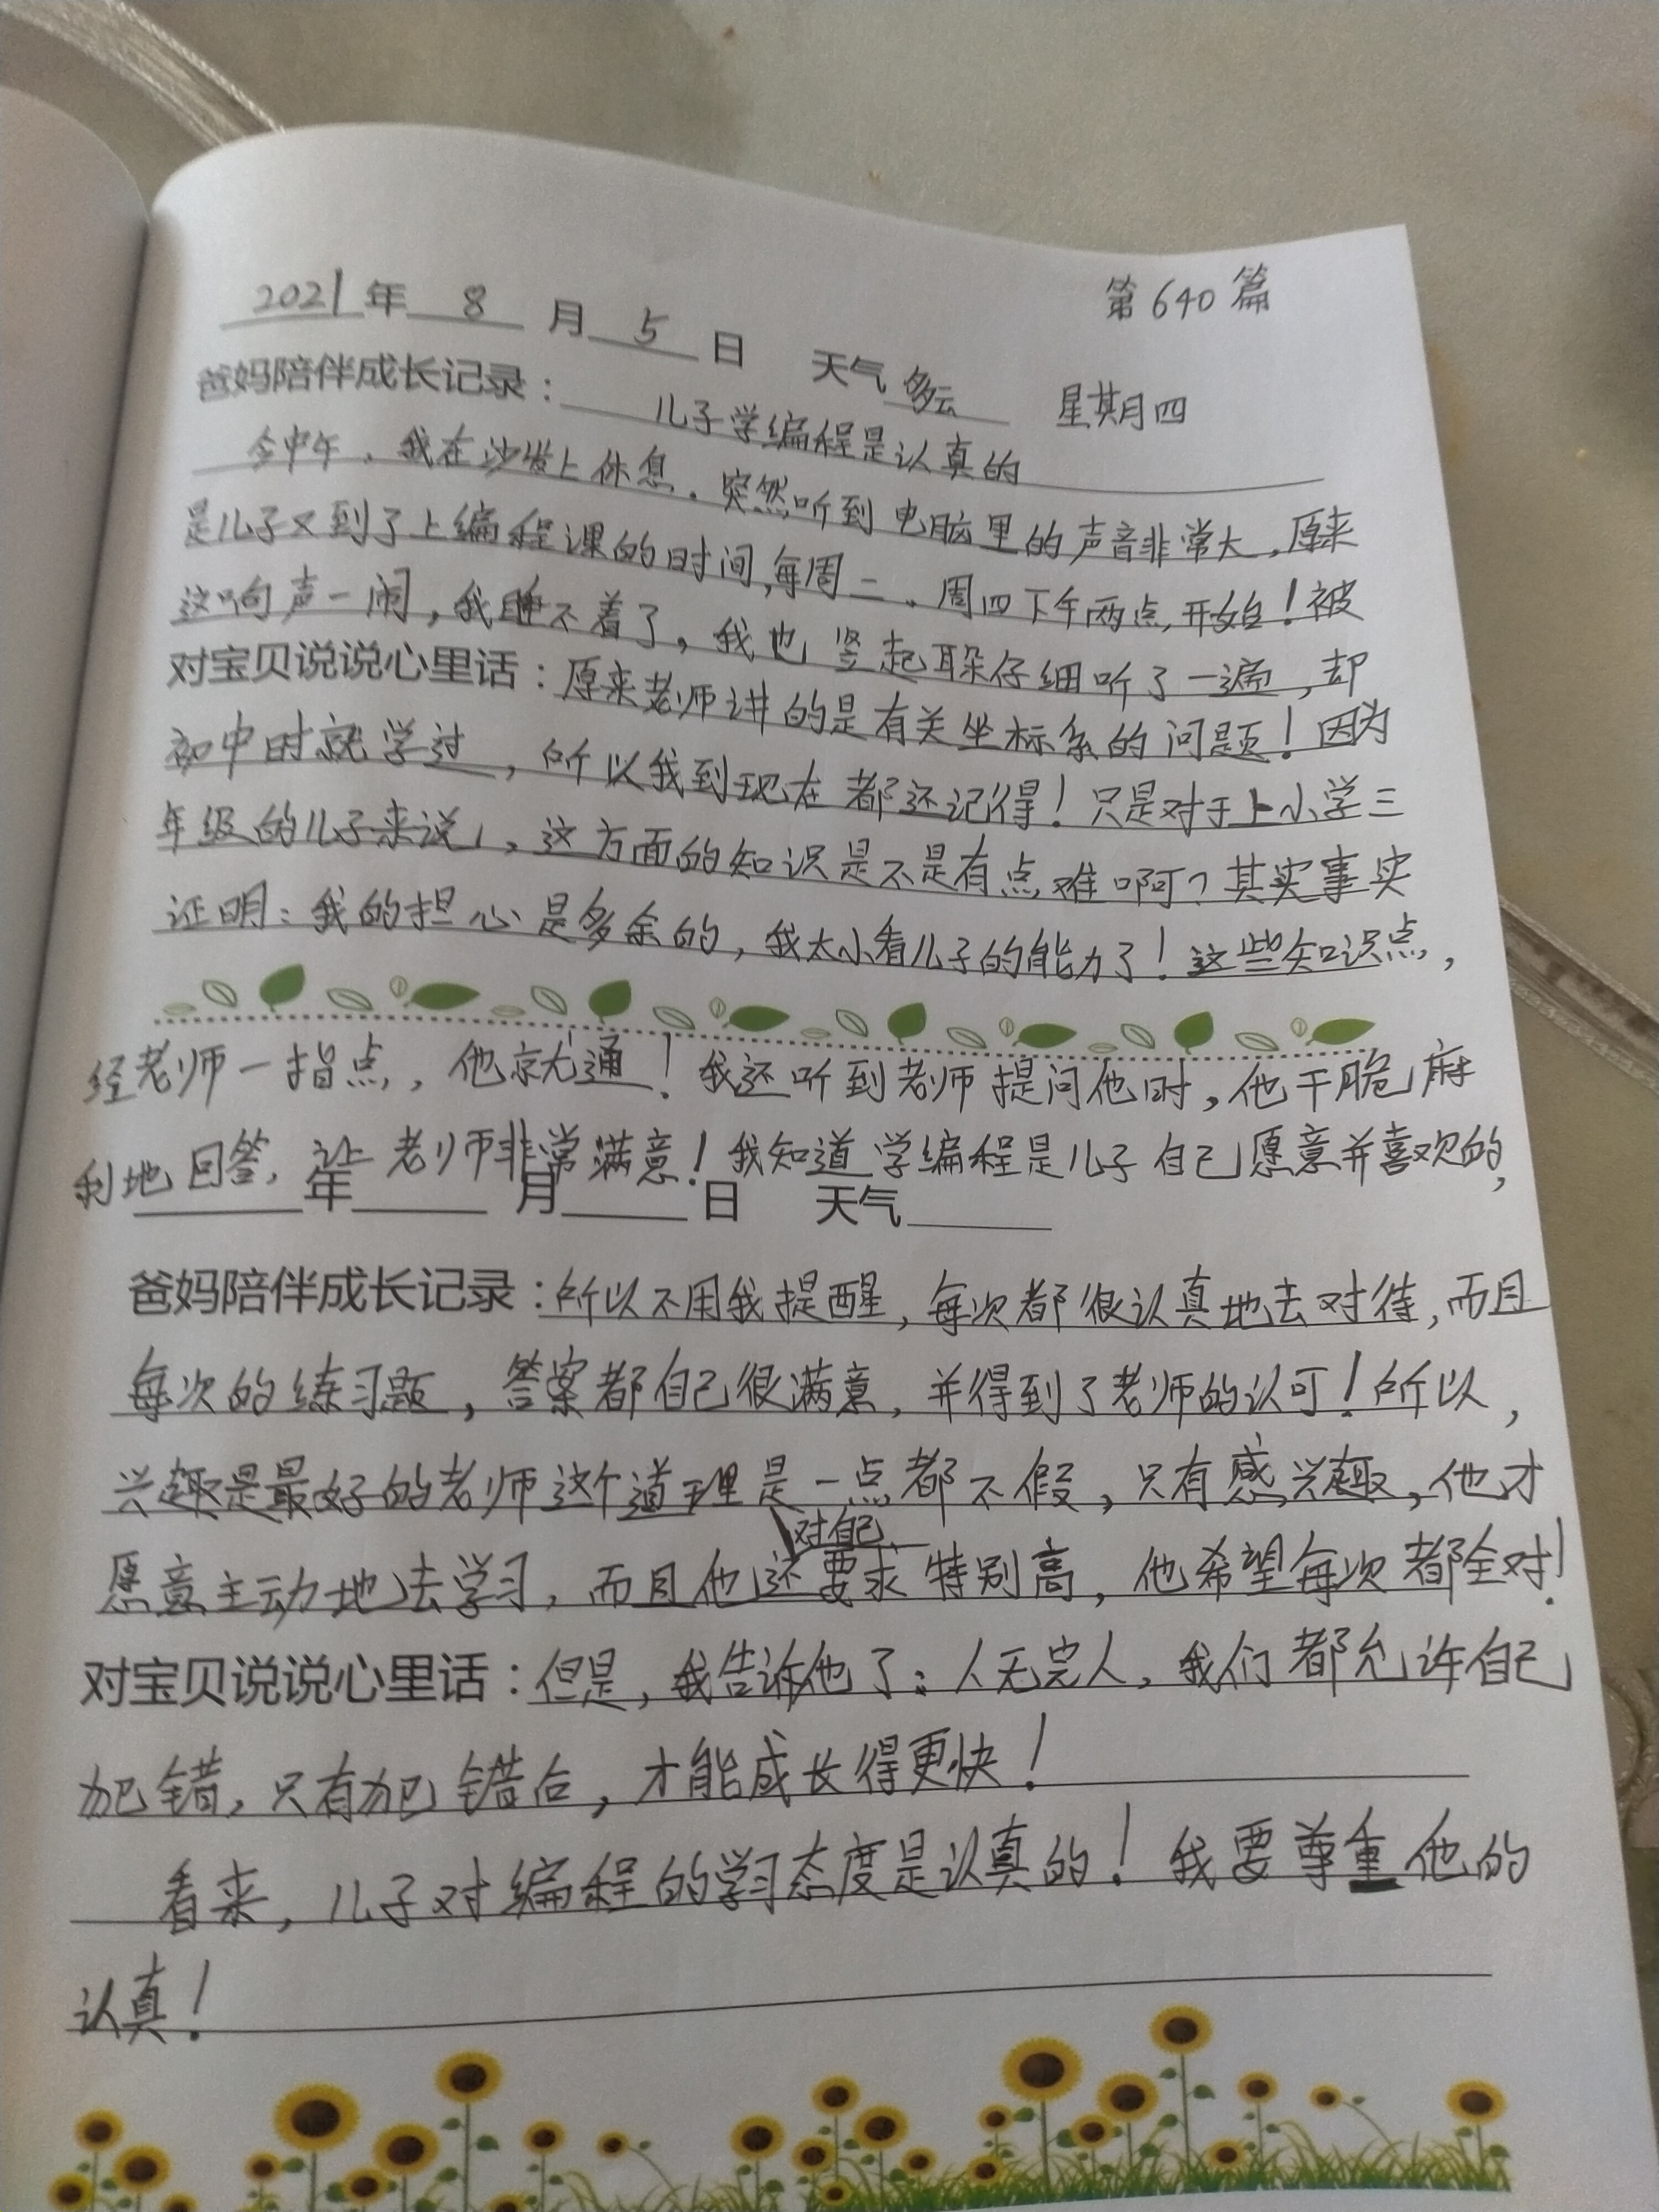 第640篇
2021年 8 月 5 日 天气 多云 星期四
爸妈陪伴成长记录: 儿子学编程是认真的
今中午,我在沙发上休息。突然听到电脑里的声音非常大,原来
是儿子又到了上编程课的时间,每周二、周四下午两点开始!被
这响声一闹,我睡不着了,我也竖起耳朵仔细听了一遍,却
对宝贝说说心里话:原来老师讲的是有关坐标系的问题!因为
初中时就学过,所以我到现在都还记得!只是对于上小学三
年级的儿子来说,这方面的知识是不是有点难啊?其实事实
证明:我的担心是多余的,我太小看儿子的能力了!这些知识点,
经老师一指点,他就通!我还听到老师提问他时,他干脆麻
利地回答,让老师非常满意!我知道学编程是儿子自己愿意并喜欢的,
年 月 日 天气
爸妈陪伴成长记录:所以不用我提醒,每次都很认真地去对待,而且
每次的练习题,答案都自己很满意,并得到了老师的认可!所以,
兴趣是最好的老师这个道理是一点都不假,只有感兴趣,他才
愿意主动地去学习,而且他还对自己要求特别高,他希望每次都全对!
对宝贝说说心里话:但是,我告诉他了:人无完人,我们都允许自己
犯错,只有犯错后,才能成长得更快!
看来,儿子对编程的学习态度是认真的!我要尊重他的
认真!